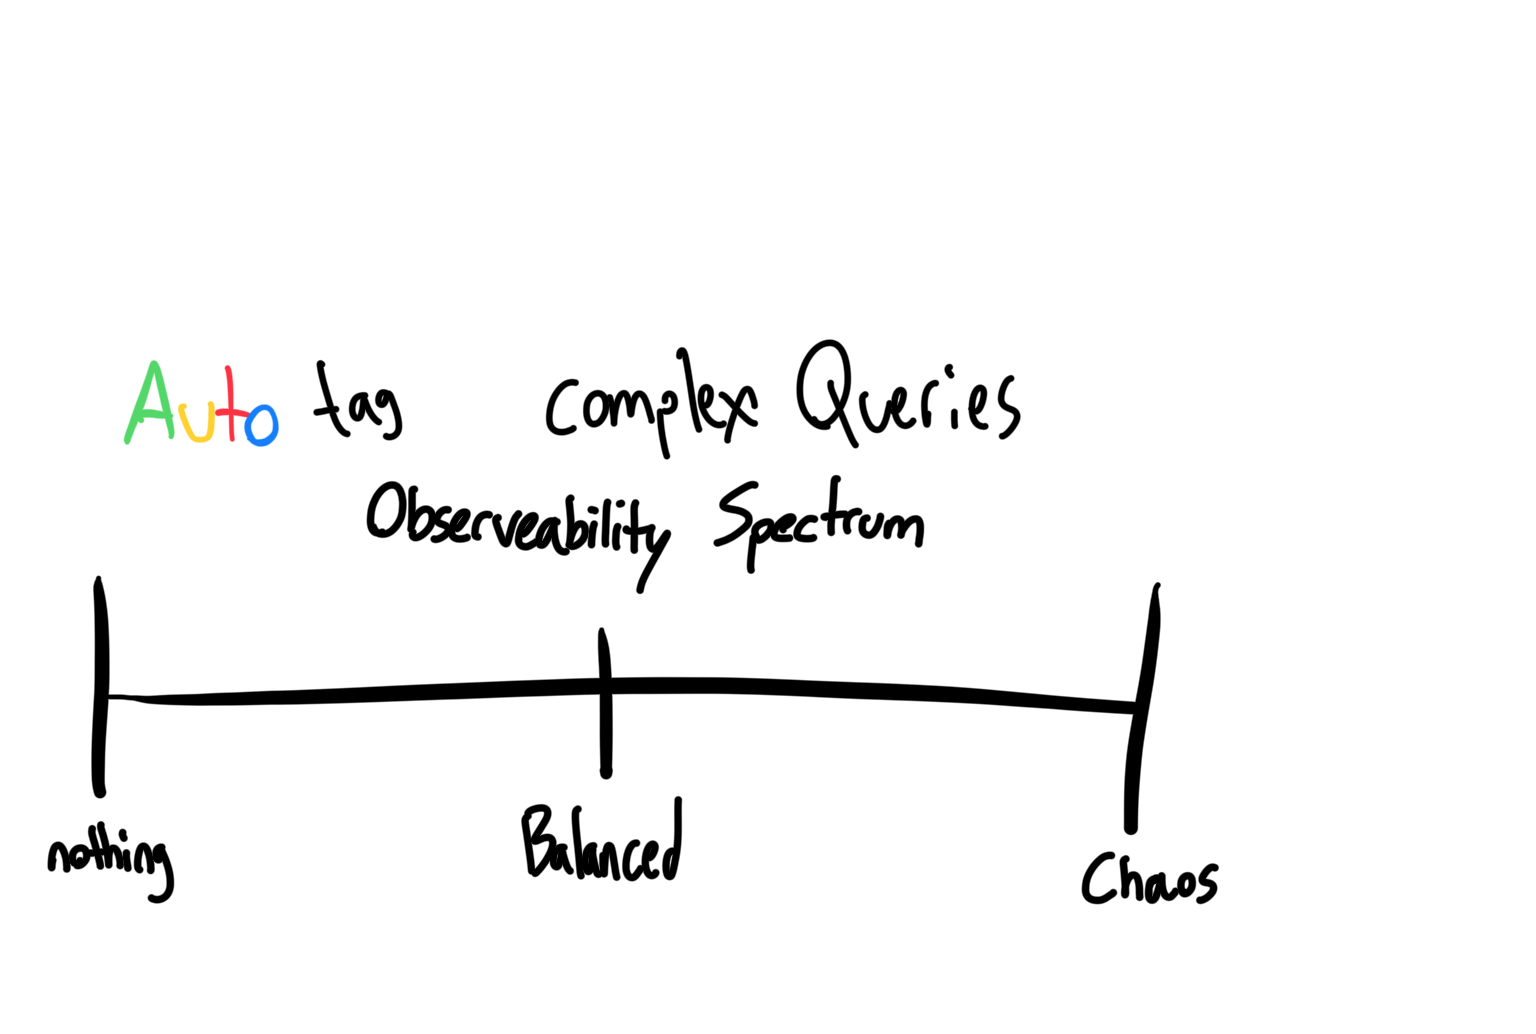 Auto tag complex Queries
Observeability Spectrum
nothing Balanced Chaos